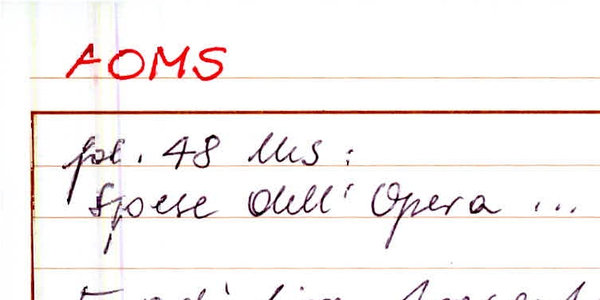 AOMS
fol. 48 Ms:
Spese dell' Opera ...